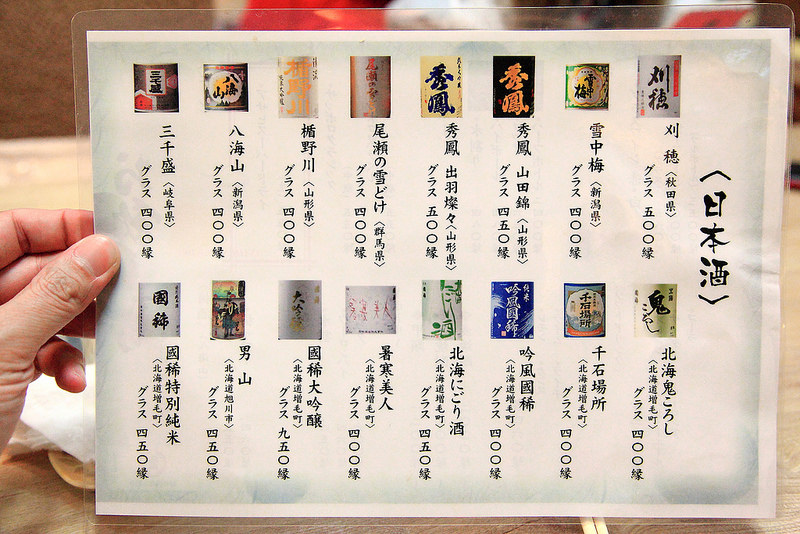 〈日本酒〉
刈穂
刈 穂〈秋田県〉
グラス 五〇〇縁
雪中梅
雪中梅〈新潟県〉
グラス 四〇〇縁
秀鳳
秀鳳 山田錦〈山形県〉
グラス 四五〇縁
秀鳳
秀鳳 出羽燦々〈山形県〉
グラス 五〇〇縁
尾瀬の雪どけ〈群馬県〉
グラス 四〇〇縁
楯野川
楯野川〈山形県〉
グラス 四〇〇縁
八海山
八海山〈新潟県〉
グラス 四〇〇縁
三千盛
三千盛〈岐阜県〉
グラス 四〇〇縁
鬼ころし
北海鬼ころし
〈北海道増毛町〉
グラス 四〇〇縁
千石場所
千石場所
〈北海道増毛町〉
グラス 四〇〇縁
純米
吟風國稀
吟風國稀
〈北海道増毛町〉
グラス 四〇〇縁
にごり酒
北海にごり酒
〈北海道増毛町〉
グラス 四五〇縁
暑寒美人
暑寒美人
〈北海道増毛町〉
グラス 四〇〇縁
大吟醸
國稀大吟醸
〈北海道増毛町〉
グラス 九五〇縁
男 山
〈北海道旭川市〉
グラス 四五〇縁
國稀
國稀特別純米
〈北海道増毛町〉
グラス 四五〇縁